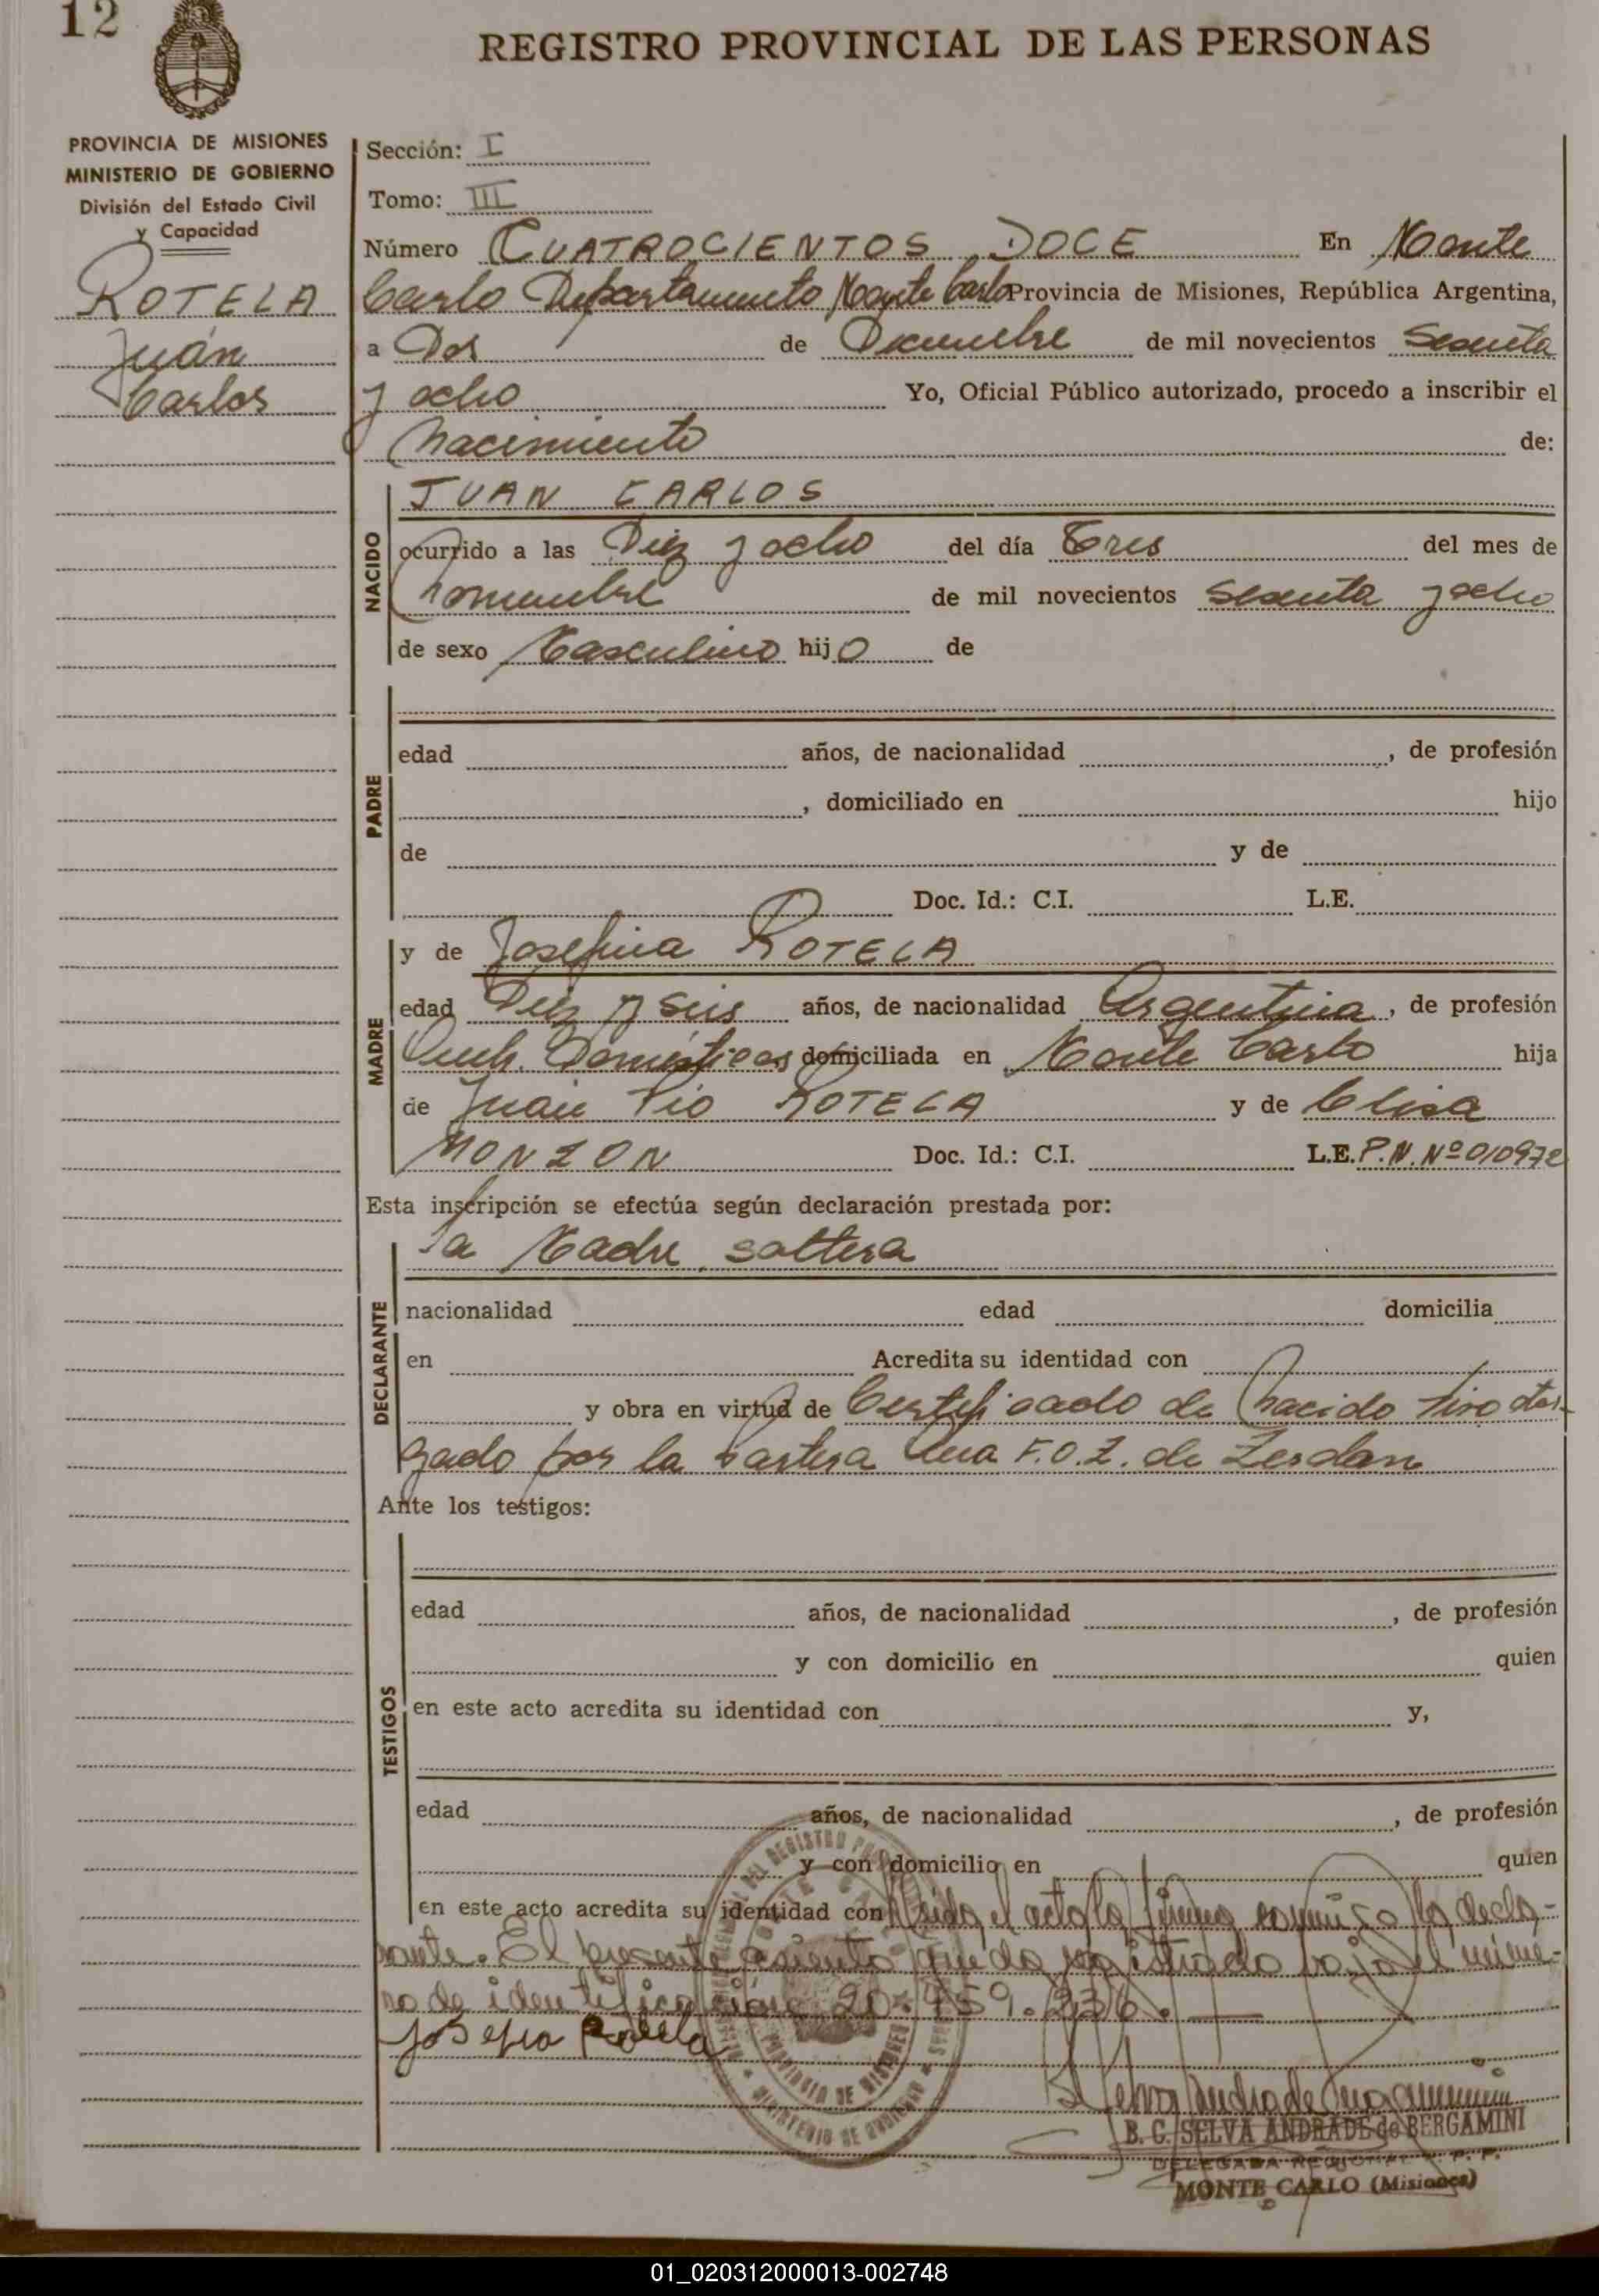 12
REGISTRO PROVINCIAL DE LAS PERSONAS
PROVINCIA DE MISIONES
MINISTERIO DE GOBIERNO
División del Estado Civil
y Capacidad
ROTELA
Juan
Carlos
Sección: I
Tomo: III
Número CUATROCIENTOS DOCE En Monte
Carlo Departamento Monte Carlo Provincia de Misiones, República Argentina,
a Dos de Diciembre de mil novecientos Sesenta
y ocho Yo, Oficial Público autorizado, procedo a inscribir el
Nacimiento de:
NACIDO
JUAN CARLOS
ocurrido a las Diez y ocho del día Tres del mes de
Noviembre de mil novecientos Sesenta y ocho
de sexo Masculino hijo de
PADRE
edad años, de nacionalidad , de profesión
, domiciliado en hijo
de y de
Doc. Id.: C.I. L.E.
MADRE
y de Josefina ROTELA
edad Diez y seis años, de nacionalidad Argentina, de profesión
Domésticos domiciliada en Monte Carlo hija
de Juan Pío ROTELA y de Elisa
MONZON Doc. Id.: C.I. L.E. P.N. Nº 010972
Esta inscripción se efectúa según declaración prestada por:
DECLARANTE
la Madre, soltera
nacionalidad edad domicilia
en Acredita su identidad con
y obra en virtud de Certificado de Nacido Vivo otor-
gado por la Partera Ana F.O.Z. de Zerdan
Ante los testigos:
TESTIGOS
edad años, de nacionalidad , de profesión
y con domicilio en quien
en este acto acredita su identidad con y,
edad años, de nacionalidad , de profesión
y con domicilio en quien
en este acto acredita su identidad con Leida el acta la firma conmigo la decla-
rante. El presente asiento queda registrado bajo el núme-
ro de identificación 20.459.236.
Josefina Rotela
PROVINCIA DE MISIONES
MINISTERIO DE GOBIERNO
B. C. SELVA ANDRADE de BERGAMINI
DELEGADA REGIONAL R. P. P.
MONTE CARLO (Misiones)
01_020312000013-002748